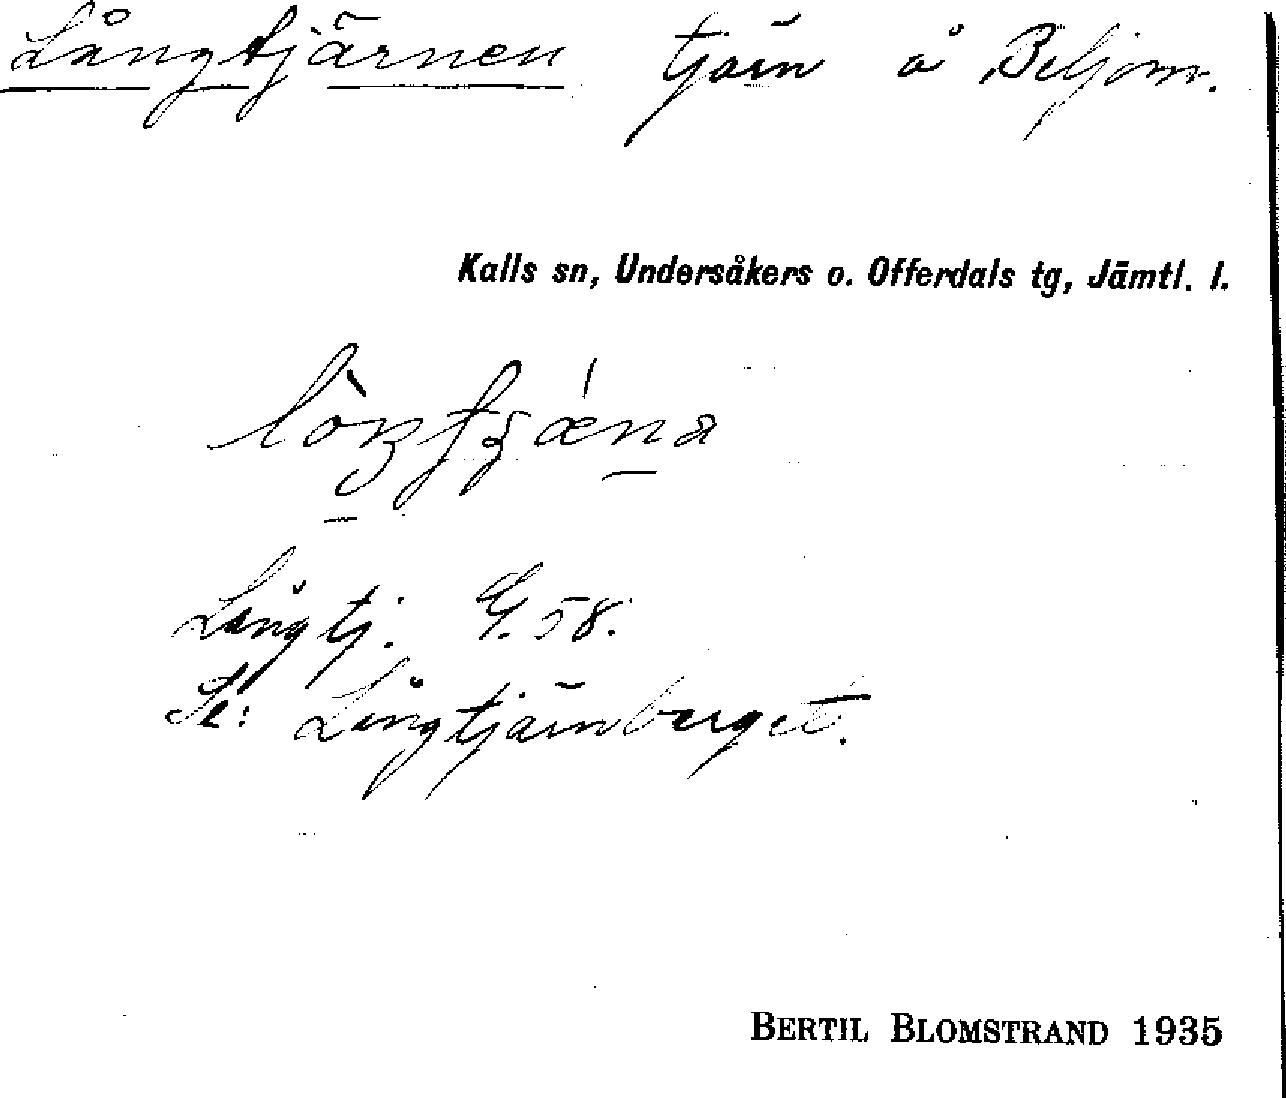 Långtjärnen tjärn å Beljom.
Kalls sn, Undersåkers o. Offerdals tg, Jämtl. l.
Långtj. G. 58.
Se: Långtjärnberget.
BERTIL BLOMSTRAND 1935